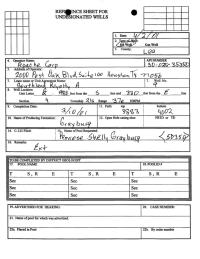 SHEET FOR
UNDESIGNATED WELLS
1. Date: 4/2/01
2. Type of Well:
Oil Well Gas Well
3. County:
Lea
4. Operator Name: API NUMBER
Apache Corp 30-025-35352
5. Address of Operator:
2000 Post Oak Blvd, Suite 100 Houston Tx 77056
6. Lease name or Unit Agreement Name: 7. Well No.
Royalty A
8. Well Location
Unit Letter feet from the S line and 330 feet from the E line
Section 4 Township 21S Range 37E NMPM
9. Completion Date: Perfs Top Bottom
3/10/01 3883 4002
10. Name of Producing Formation: Open Hole casing shoe TD
Grayburg
14. C-123 Filed: Name of Pool Requested
Penrose Skelly Grayburg <50350>
16. Remarks:
Ext
TO BE COMPLETED BY DISTRICT GEOLOGIST
17. POOL NAME 18. POOL ID #
T S, R E T S, R E
Sec Sec
Sec Sec
Sec Sec
Sec Sec
19. ADVERTISED FOR HEARING: 20. CASE NUMBER:
21. Name of pool for which was advertised:
22a. Placed in Pool: 22b. By order number